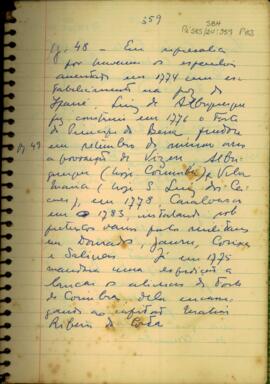 359
SBH
Pg. 48 - Em represália
por haverem os espanhois
em 1774 um es-
tabelecimento na foz do
Ipané. Luiz de Albuquerque
fez construir em 1776 o Forte
do Principe da Beira, fundou
em setembro do mesmo ano
Pg 49
a povoação de Vizeu, Albu-
querque (hoje Corumbá), e Vila
Maria (hoje S. Luiz de Cá-
ceres), em 1778 Casalvasco
em 1783, instalando sob
em Dourados, Jauru,
e Salinas. Já em 1775
mandara uma expedição a
lançar os alicerces do Forte
de Coimbra, dela encarre-
gando ao capitão Matias
Ribeiro da Costa